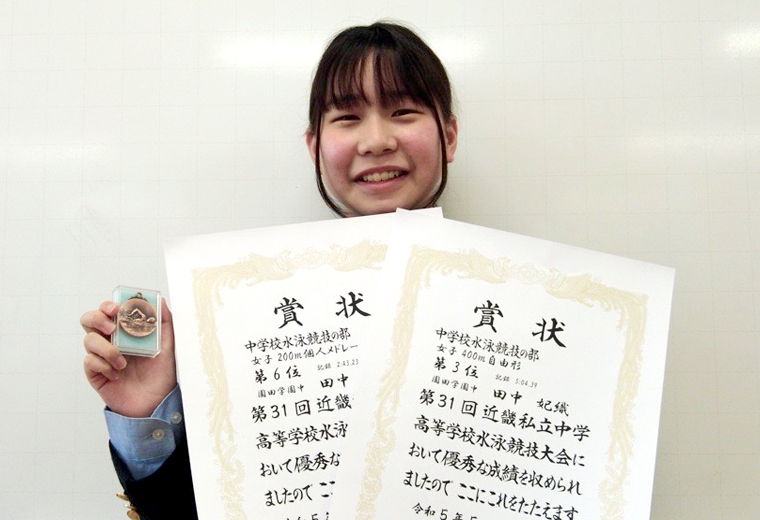 賞状
中学校水泳競技の部
女子 200m個人メドレー
第6位 記録 2:43.23
園田学園中 田中
第31回近畿
高等学校水泳
おいて優秀な
ましたのでここ
賞状
中学校水泳競技の部
女子 400m自由形
第3位 記録 5:04.39
園田学園中 田中 妃織
第31回近畿私立中学
高等学校水泳競技大会に
おいて優秀な成績を収められ
ましたのでここにこれをたたえます
令和5年5